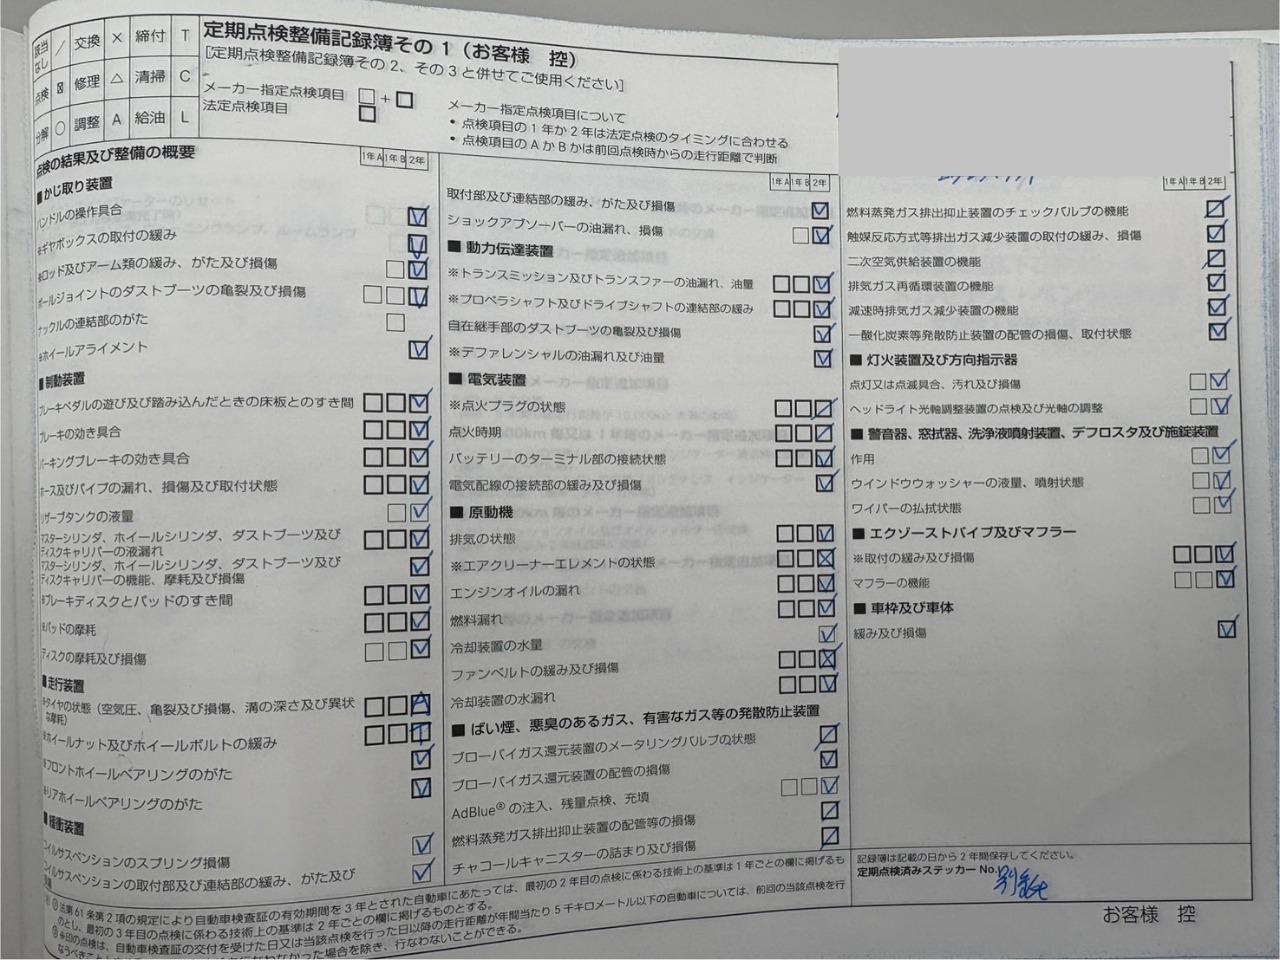 該当なし / 交換 × 締付 T
点検 修理 △ 清掃 C
分解 ○ 調整 A 給油 L
定期点検整備記録簿その1(お客様 控)
[定期点検整備記録簿その2、その3と併せてご使用ください]
メーカー指定点検項目 □+□
法定点検項目 □
メーカー指定点検項目について
・点検項目の1年か2年は法定点検のタイミングに合わせる
・点検項目のAかBかは前回点検時からの走行距離で判断
点検の結果及び整備の概要
1年A 1年B 2年
■かじ取り装置
ハンドルの操作具合
※ギヤボックスの取付の緩み
※ロッド及びアーム類の緩み、がた及び損傷
ボールジョイントのダストブーツの亀裂及び損傷
ナックルの連結部のがた
※ホイールアライメント
■制動装置
ブレーキペダルの遊び及び踏み込んだときの床板とのすき間
ブレーキの効き具合
パーキングブレーキの効き具合
ホース及びパイプの漏れ、損傷及び取付状態
リザーブタンクの液量
マスターシリンダ、ホイールシリンダ、ダストブーツ及び
ディスクキャリパーの液漏れ
マスターシリンダ、ホイールシリンダ、ダストブーツ及び
ディスクキャリパーの機能、摩耗及び損傷
※ブレーキディスクとパッドのすき間
※パッドの摩耗
ディスクの摩耗及び損傷
■走行装置
※タイヤの状態(空気圧、亀裂及び損傷、溝の深さ及び異状
な摩耗) A
※ホイールナット及びホイールボルトの緩み T
※フロントホイールベアリングのがた
※リアホイールベアリングのがた
■緩衝装置
コイルサスペンションのスプリング損傷
コイルサスペンションの取付部及び連結部の緩み、がた及び
損傷
1年A 1年B 2年
取付部及び連結部の緩み、がた及び損傷
ショックアブソーバーの油漏れ、損傷
■動力伝達装置
※トランスミッション及びトランスファーの油漏れ、油量
※プロペラシャフト及びドライブシャフトの連結部の緩み
自在継手部のダストブーツの亀裂及び損傷
※デファレンシャルの油漏れ及び油量
■電気装置
※点火プラグの状態
点火時期
バッテリーのターミナル部の接続状態
電気配線の接続部の緩み及び損傷
■原動機
排気の状態
※エアクリーナーエレメントの状態
エンジンオイルの漏れ
燃料漏れ
冷却装置の水量
ファンベルトの緩み及び損傷
冷却装置の水漏れ
■ばい煙、悪臭のあるガス、有害なガス等の発散防止装置
ブローバイガス還元装置のメータリングバルブの状態
ブローバイガス還元装置の配管の損傷
AdBlue®の注入、残量点検、充填
燃料蒸発ガス排出抑止装置の配管等の損傷
チャコールキャニスターの詰まり及び損傷
1年A 1年B 2年
燃料蒸発ガス排出抑止装置のチェックバルブの機能
触媒反応方式等排出ガス減少装置の取付の緩み、損傷
二次空気供給装置の機能
排気ガス再循環装置の機能
減速時排気ガス減少装置の機能
一酸化炭素等発散防止装置の配管の損傷、取付状態
■灯火装置及び方向指示器
点灯又は点滅具合、汚れ及び損傷
ヘッドライト光軸調整装置の点検及び光軸の調整
■警音器、窓拭器、洗浄液噴射装置、デフロスタ及び施錠装置
作用
ウインドウウォッシャーの液量、噴射状態
ワイパーの払拭状態
■エクゾーストパイプ及びマフラー
※取付の緩み及び損傷
マフラーの機能
■車枠及び車体
緩み及び損傷
記録簿は記載の日から2年間保存してください。
定期点検済みステッカー No. 別紙
お客様 控
①法第61条第2項の規定により自動車検査証の有効期間を3年とされた自動車にあたっては、最初の2年目の点検に係わる技術上の基準は1年ごとの欄に掲げるも
のとし、最初の3年目の点検に係わる技術上の基準は2年ごとの欄に掲げるものとする。
②※印の点検は、自動車検査証の交付を受けた日又は当該点検を行った日以降の走行距離が年間当たり5千キロメートル以下の自動車については、前回の当該点検を行
なうべきこととされる 行なわなかった場合を除き、行なわないことができる。